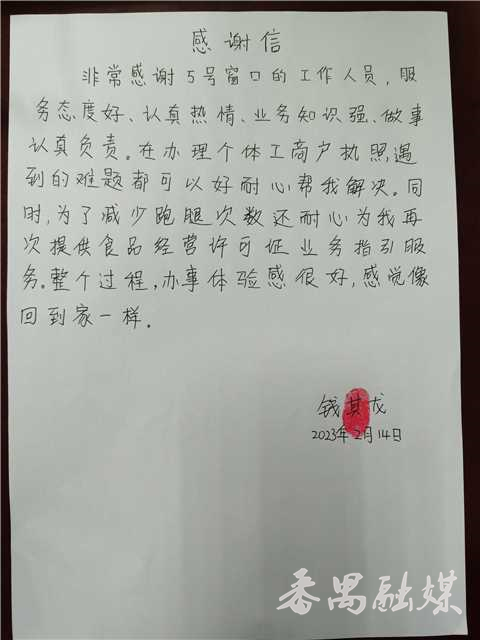 感谢信
非常感谢5号窗口的工作人员，服
务态度好、认真热情、业务知识强、做事
认真负责。在办理个体工商户执照,遇
到的难题都可以好耐心帮我解决。同
时,为了减少跑腿次数还耐心为我再
次提供食品经营许可证业务指引服
务。整个过程,办事体验感很好,感觉像
回到家一样。
钱其龙
2023年2月14日
番禺融媒